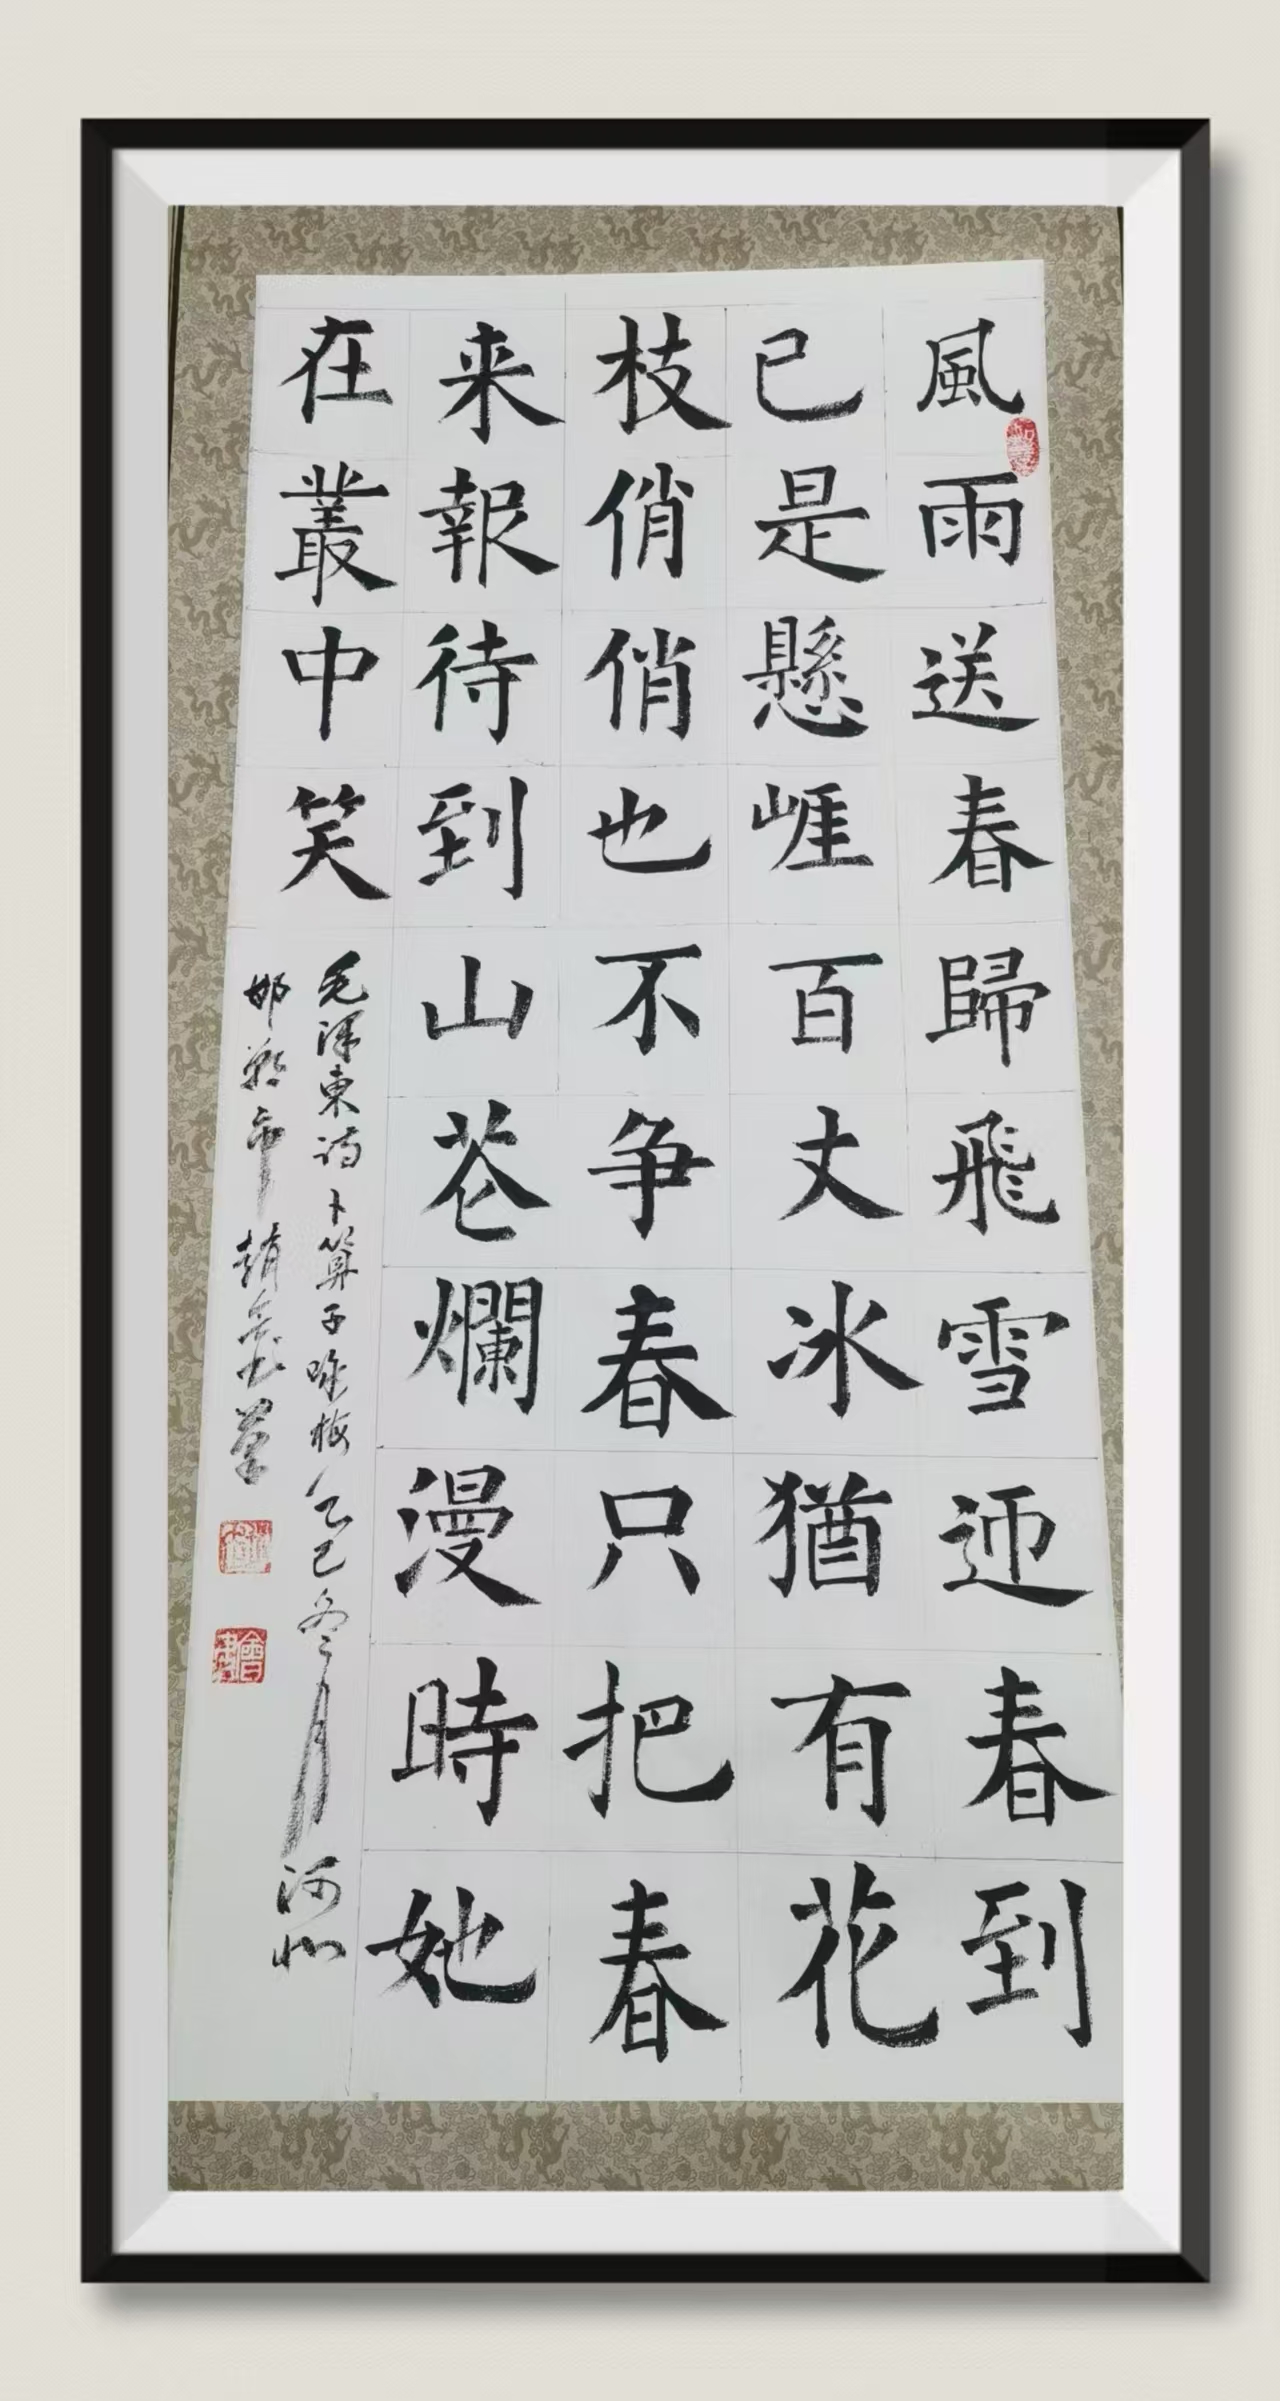 風雨送春歸飛雪迎春到
已是懸崖百丈冰猶有花
枝俏俏也不争春只把春
来報待到山花爛漫時她
在叢中笑
毛澤東詩卜算子咏梅乙巳冬月河北
邯鄲市趙